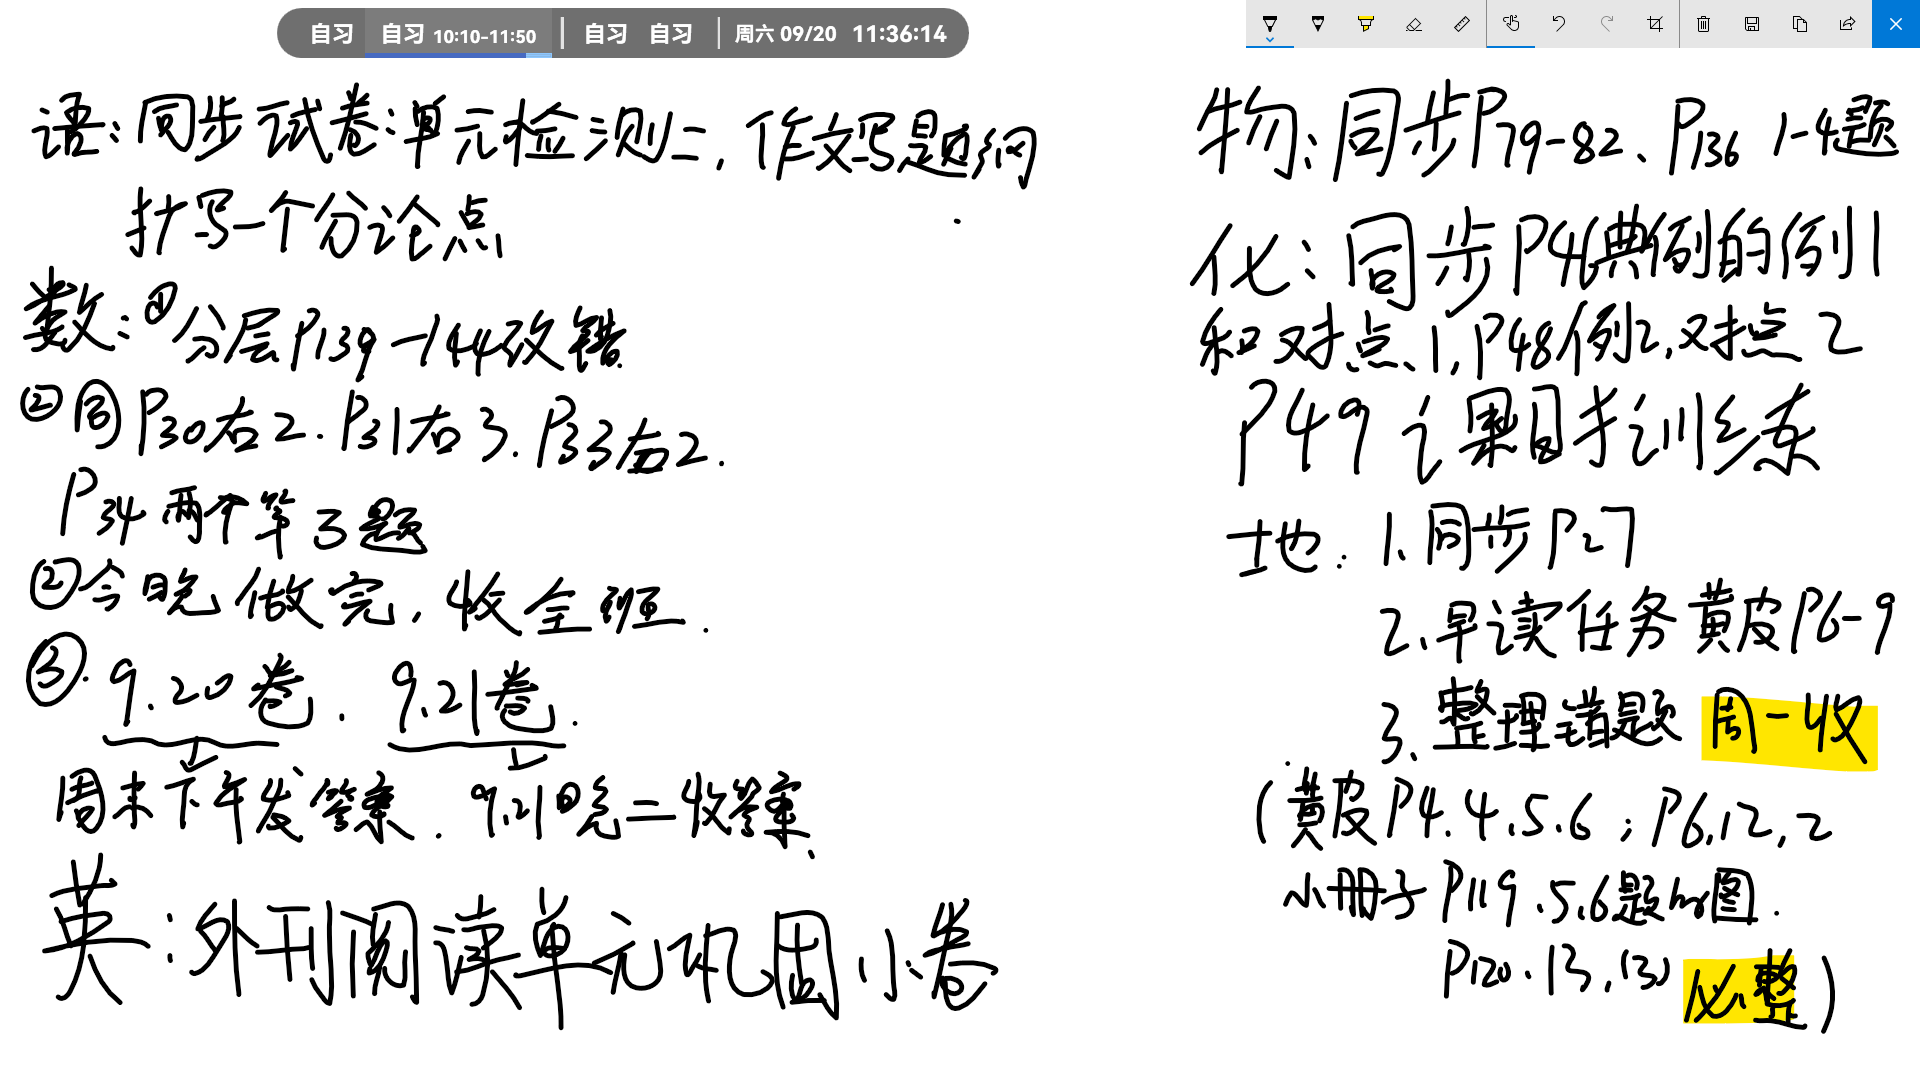 自习 自习 10:10-11:50 自习 自习 周六 09/20 11:36:14
语:同步试卷:单元检测二,作文写题纲
抄写一个分论点
数:①分层P139-144改错.
②同P30右2.P31右3.P33左2.
P34两个第3题
②今晚做完,收全班.
③.9.20卷.9.21卷.
周末下午发答案.9.21日晚二收答案.
英:外刊阅读单元巩固小卷
物:同步P79-82、P136 1-4题
化:同步P46典例的例1
和对点、1,P48例2,对点2
P49课目标训练
地:1、同步P27
2、早读任务黄皮P6-9
3、整理错题 周一收
(黄皮P4.4.5.6;P6,12,2
小册子P119.5,6题的图.
P120.13,(3)必整)